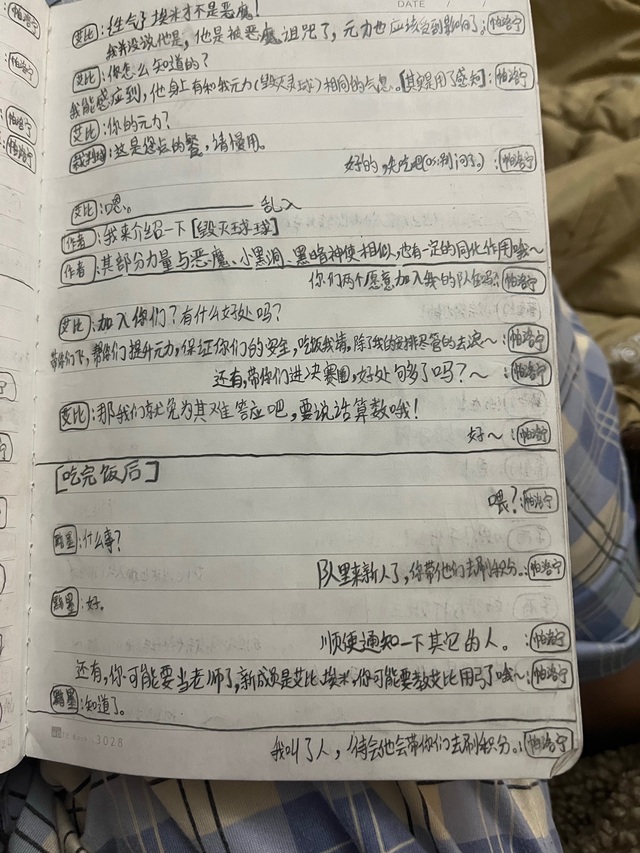 DATE / /
艾比:(生气了)埃米才不是恶魔!
我并没说他是,他是被恶魔诅咒了,元力也应该受到影响了。:帕洛宁
艾比:你怎么知道的?
我能感应到,他身上有和我元力(毁灭球)相同的气息。[其实是用了感知]:帕洛宁
艾比:你的元力?
:这是您点的餐,请慢用。
好的,先吃吧(os:别问了。):帕洛宁
艾比:嗯。 乱入
作者:我来介绍一下[毁灭球球]
作者:其部分力量与恶魔、小黑洞、黑暗神使相似,也有一定的同化作用哦~
你们两个愿意加入我的队伍吗?:帕洛宁
艾比:加入你们?有什么好处吗?
带你们飞,帮你们提升元力,保证你们的安全,吃饭我请,除了我的安排尽管的去浪~:帕洛宁
还有,带你们进决赛圈,好处够多了吗?~:帕洛宁
艾比:那我们就免为其难答应吧,要说话算数哦!
好~:帕洛宁
[吃完饭后]
喂?:帕洛宁
:什么事?
队里来新人了,你带他们去刷积分。:帕洛宁
:好。
顺便通知一下其它的人。:帕洛宁
还有,你可能要当老师了,新成员是艾比、埃米,你可能要教艾比用弓了哦~:帕洛宁
:知道了。
3028
我叫了人,待会他会带你们去刷积分。:帕洛宁